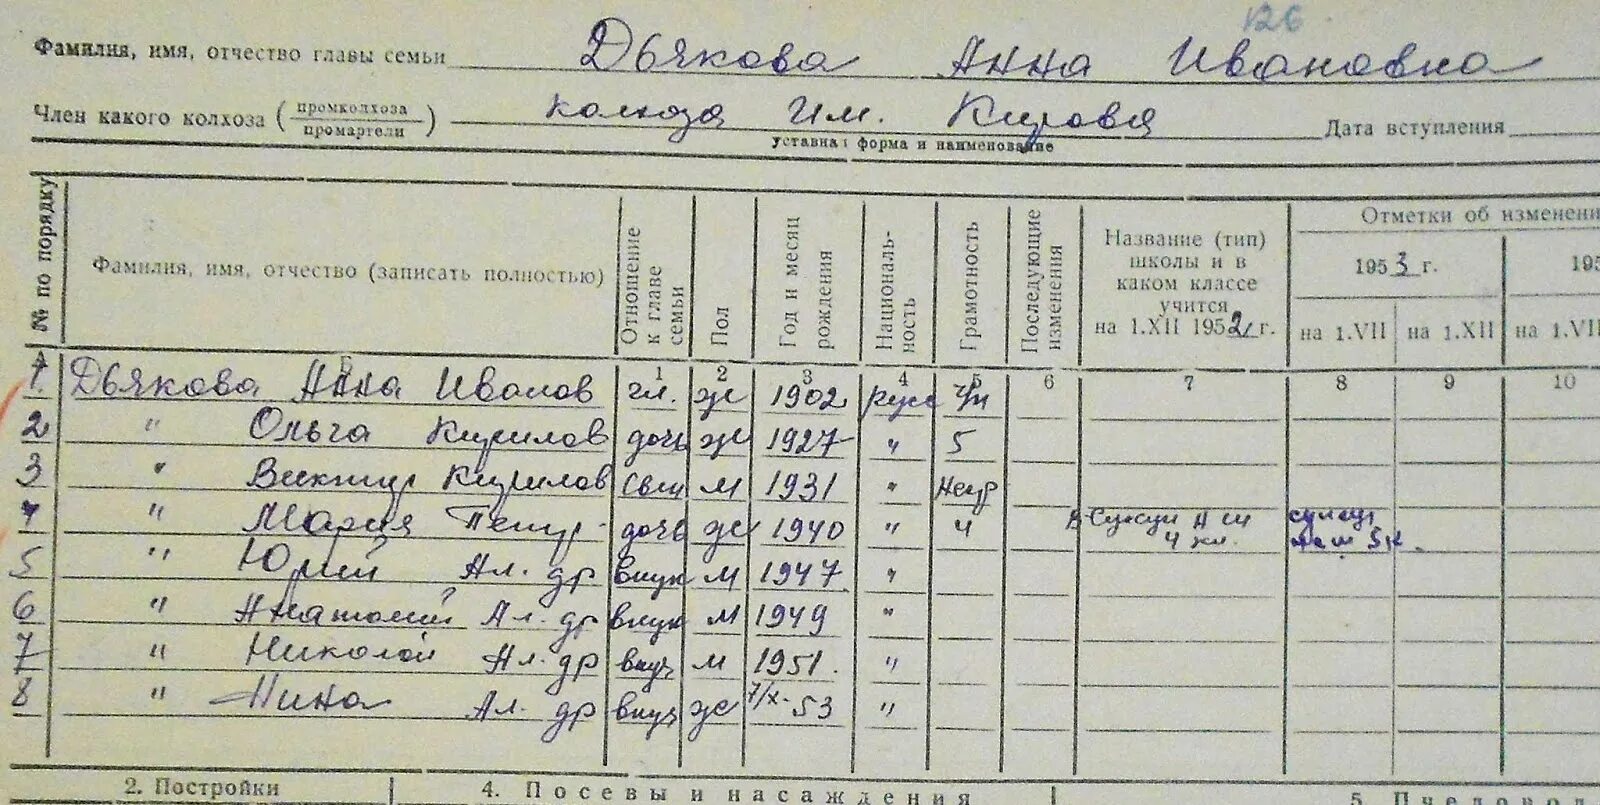 126
Фамилия, имя, отчество главы семьи Дьякова Анна Ивановна
Член какого колхоза (промколхоза / промартели) колхоза Им. Кирова Дата вступления
уставная форма и наименование
№ по порядку
Фамилия, имя, отчество (записать полностью)
Отношение к главе семьи
Пол
Год и месяц рождения
Националь-ность
Грамотность
Последующие изменения
Название (тип) школы и в каком классе учится на 1.XII 1952 г.
Отметки об изменени
1953 г.
195
на 1.VII
на 1.XII
на 1.VII
А Б 1 2 3 4 5 6 7 8 9 10
1. Дьякова Анна Иванов гл. ж 1902 русс
2 " Ольга Кирилов дочь ж 1927 " 5
3 " Виктир Кирилов сын м 1931 " негр
4 " Мария Петр дочь ж 1940 " 4
4 кл.
5 " Юрий Ал. др внук м 1947 "
6 " Анатолий Ал. др внук м 1949 "
7 " Николой Ал. др внуч м 1951. "
8 " Нина Ал. др внуч ж 7/X-53 "
2. Постройки
4. Посевы и насаждения
5. Пчеловод